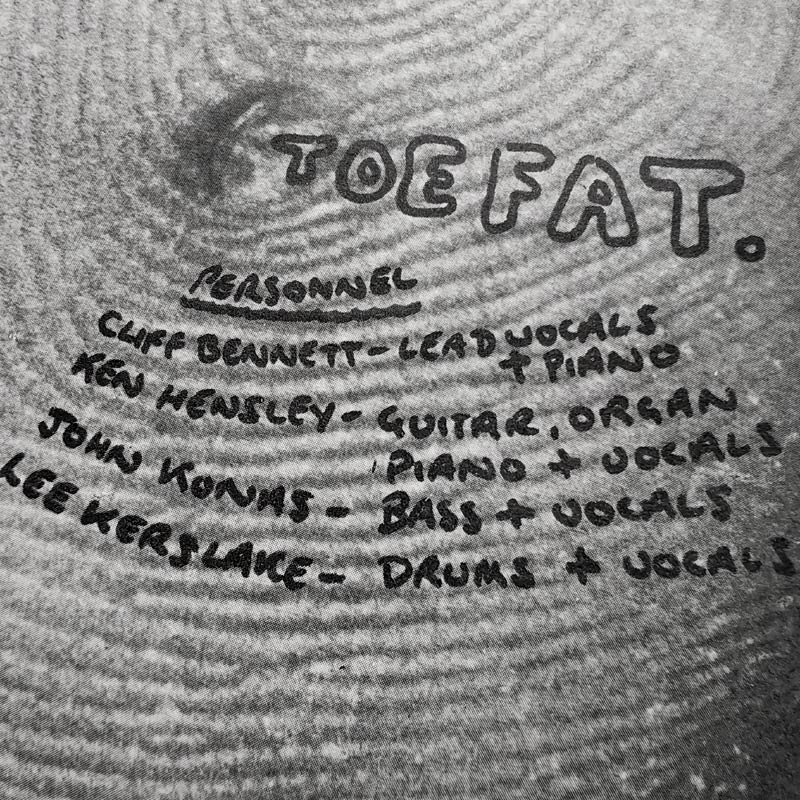 TOE FAT.
PERSONNEL
CLIFF BENNETT - LEAD VOCALS
+ PIANO
KEN HENSLEY - GUITAR, ORGAN
PIANO + VOCALS
JOHN KONAS - BASS + VOCALS
LEE KERSLAKE - DRUMS + VOCALS